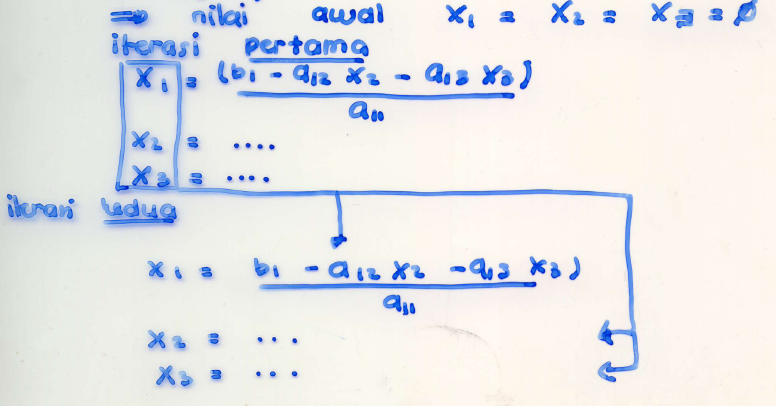 ⇒ nilai awal x₁ = x₂ = x₃ = ∅
iterasi pertama
x₁ = (b₁ - a₁₂ x₂ - a₁₃ x₃)
a₁₁
x₂ = ....
x₃ = ....
iterasi kedua
x₁ = b₁ - a₁₂ x₂ - a₁₃ x₃)
a₁₁
x₂ = ...
x₃ = ...